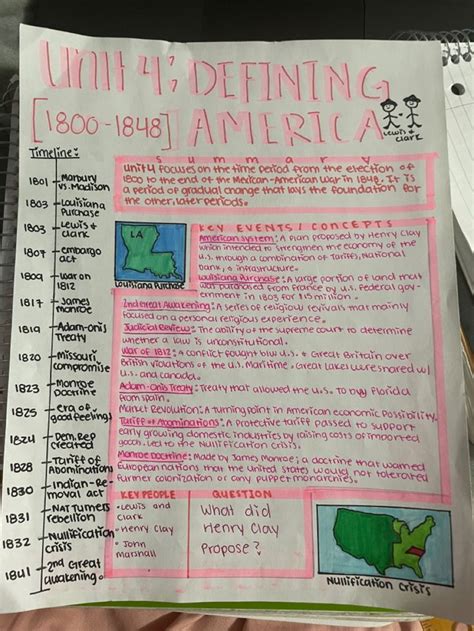 UNIT 4: DEFINING
[1800-1848] AMERICA
Lewis &
Clark
Timeline:
1801 Marbury
vs. Madison
1803 Louisiana
Purchase
1803 Lewis &
Clark
1807 embargo
act
1809 war on
1812
1817 James
monroe
1819 Adam-onis
Treaty
1820 missouri
compromise
1823 Monroe
Doctrine
1825 era of
good feelings
1824 Dem. Rep
created
1828 Tariff of
Abominations
1830 Indian-Re-
moval act
1831 NAT Turners
rebellion
1832 Nullification
crisis
1841 2nd Great
awakening
summary
Unit 4 focuses on the time period from the election of
1800 to the end of the Mexican-American war in 1848. It is
a period of gradual change that lays the foundation for
the other, later periods.
LA
Louisiana Purchase
KEY EVENTS / CONCEPTS
American System: A plan proposed by Henry Clay
which intended to strengthen the economy of the
U.S. through a combination of tariffs, national
bank, & infrastructure.
Louisiana Purchase: A large portion of land that
was purchased from France by U.S. federal gov-
ernment in 1803 for $15 million.
2nd Great Awakening: A series of religious revivals that mainly
focused on a personal religious experience.
Judicial Review: The ability of the supreme court to determine
whether a law is unconstitutional.
War of 1812: A conflict fought b/w U.S. & Great Britain over
British violations of the U.S. Maritime, Great lakes were shared w/
U.S. and Canada.
Adam-Onis Treaty: Treaty that allowed the U.S. to buy Florida
from Spain.
Market Revolution: A turning point in American economic possibility.
Tariff of Abominations: A protective tariff passed to support
early growing domestic industries by raising costs of imported
goods. Led to the Nullification crisis.
Monroe Doctrine: Made by James Monroe; a doctrine that warned
European nations that the United States would not tolerated
further colonization or any puppet monarchies.
KEY PEOPLE
• Lewis and
Clark
• Henry Clay
• John
Marshall
QUESTION
What did
Henry Clay
Propose?
Nullification Crisis